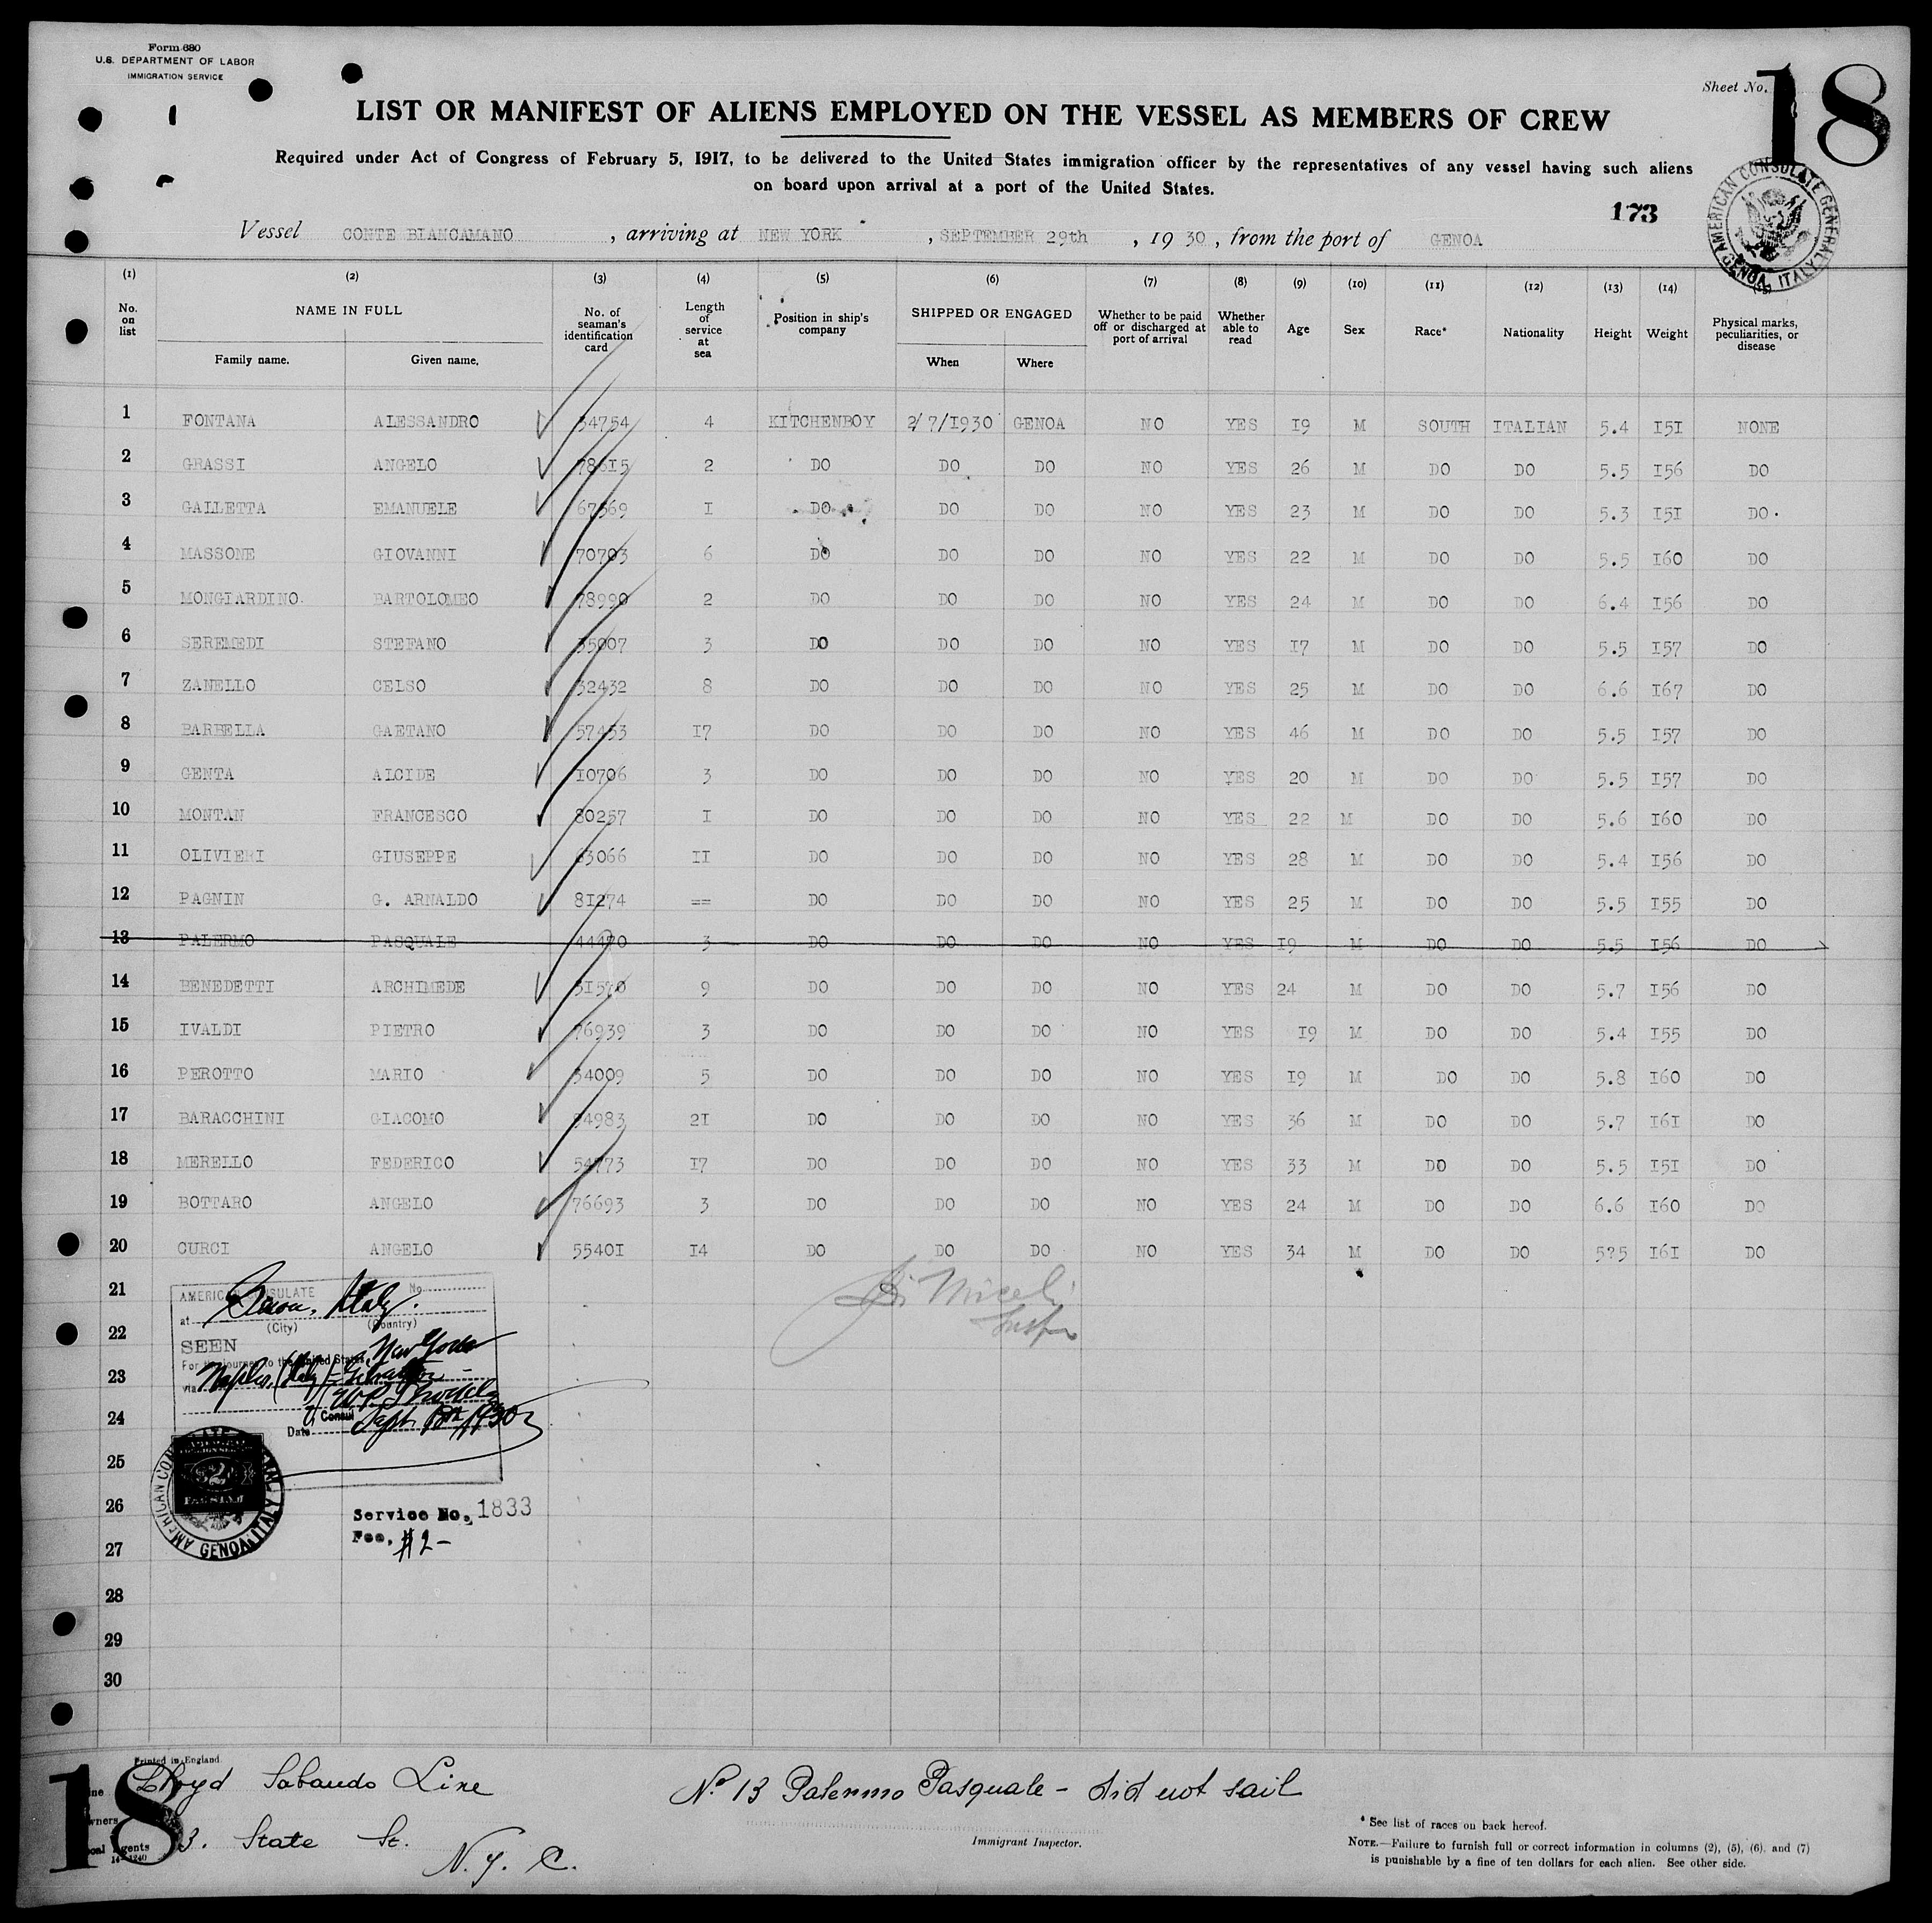 Form 680
U.S. DEPARTMENT OF LABOR
IMMIGRATION SERVICE
Sheet No. 18
LIST OR MANIFEST OF ALIENS EMPLOYED ON THE VESSEL AS MEMBERS OF CREW
Required under Act of Congress of February 5, 1917, to be delivered to the United States immigration officer by the representatives of any vessel having such aliens
on board upon arrival at a port of the United States.
173
AMERICAN CONSULATE GENERAL GENOA, ITALY
Vessel CONTE BIANCAMANO, arriving at NEW YORK, SEPTEMBER 29th, 1930, from the port of GENOA
(1) (2) (3) (4) (5) (6) (7) (8) (9) (10) (11) (12) (13) (14) (15)
No. on list NAME IN FULL Family name. Given name. No. of seaman's identification card Length of service at sea Position in ship's company SHIPPED OR ENGAGED When Where Whether to be paid off or discharged at port of arrival Whether able to read Age Sex Race* Nationality Height Weight Physical marks, peculiarities, or disease
1 FONTANA ALESSANDRO 34754 4 KITCHENBOY 2/7/1930 GENOA NO YES 19 M SOUTH ITALIAN 5.4 151 NONE
2 GRASSI ANGELO 78615 2 DO DO DO NO YES 26 M DO DO 5.5 156 DO
3 GALLETTA EMANUELE 67369 1 DO DO DO NO YES 23 M DO DO 5.3 151 DO
4 MASSONE GIOVANNI 70703 6 DO DO DO NO YES 22 M DO DO 5.5 160 DO
5 MONGIARDINO BARTOLOMEO 78990 2 DO DO DO NO YES 24 M DO DO 6.4 156 DO
6 SEREMEDI STEFANO 35007 3 DO DO DO NO YES 17 M DO DO 5.5 157 DO
7 ZANELLO CELSO 32432 8 DO DO DO NO YES 25 M DO DO 6.6 167 DO
8 BARBELLA GAETANO 57453 17 DO DO DO NO YES 46 M DO DO 5.5 157 DO
9 GENTA ALCIDE 10706 3 DO DO DO NO YES 20 M DO DO 5.5 157 DO
10 MONTAN FRANCESCO 80257 1 DO DO DO NO YES 22 M DO DO 5.6 160 DO
11 OLIVIERI GIUSEPPE 63066 11 DO DO DO NO YES 28 M DO DO 5.4 156 DO
12 PAGNIN G. ARNALDO 81274 == DO DO DO NO YES 25 M DO DO 5.5 155 DO
13 PALERMO PASQUALE 44470 3 DO DO DO NO YES 19 M DO DO 5.5 156 DO
14 BENEDETTI ARCHIMEDE 51570 9 DO DO DO NO YES 24 M DO DO 5.7 156 DO
15 IVALDI PIETRO 76939 3 DO DO DO NO YES 19 M DO DO 5.4 155 DO
16 PEROTTO MARIO 34009 5 DO DO DO NO YES 19 M DO DO 5.8 160 DO
17 BARACCHINI GIACOMO 4983 21 DO DO DO NO YES 36 M DO DO 5.7 161 DO
18 MERELLO FEDERICO 54773 17 DO DO DO NO YES 33 M DO DO 5.5 151 DO
19 BOTTARO ANGELO 76693 3 DO DO DO NO YES 24 M DO DO 6.6 160 DO
20 CURCI ANGELO 55401 14 DO DO DO NO YES 34 M DO DO 5?5 161 DO
21
22
23
24
25
26
27
28
29
30
AMERICAN CONSULATE No.
at Genoa, Italy.
(City) (Country)
SEEN
For the journey to the United States, New York
via Naples, (Italy)
Consul
Date Sept. 1930
AMERICAN CONSULATE GENERAL GENOA, ITALY
$2
Service No. 1833
Fee, $2-
Printed in England.
18
Lloyd Sabaudo Line
3. State St.
N.Y.C.
No 13 Palermo Pasquale - did not sail
Immigrant Inspector.
* See list of races on back hereof.
NOTE.—Failure to furnish full or correct information in columns (2), (5), (6), and (7)
is punishable by a fine of ten dollars for each alien. See other side.